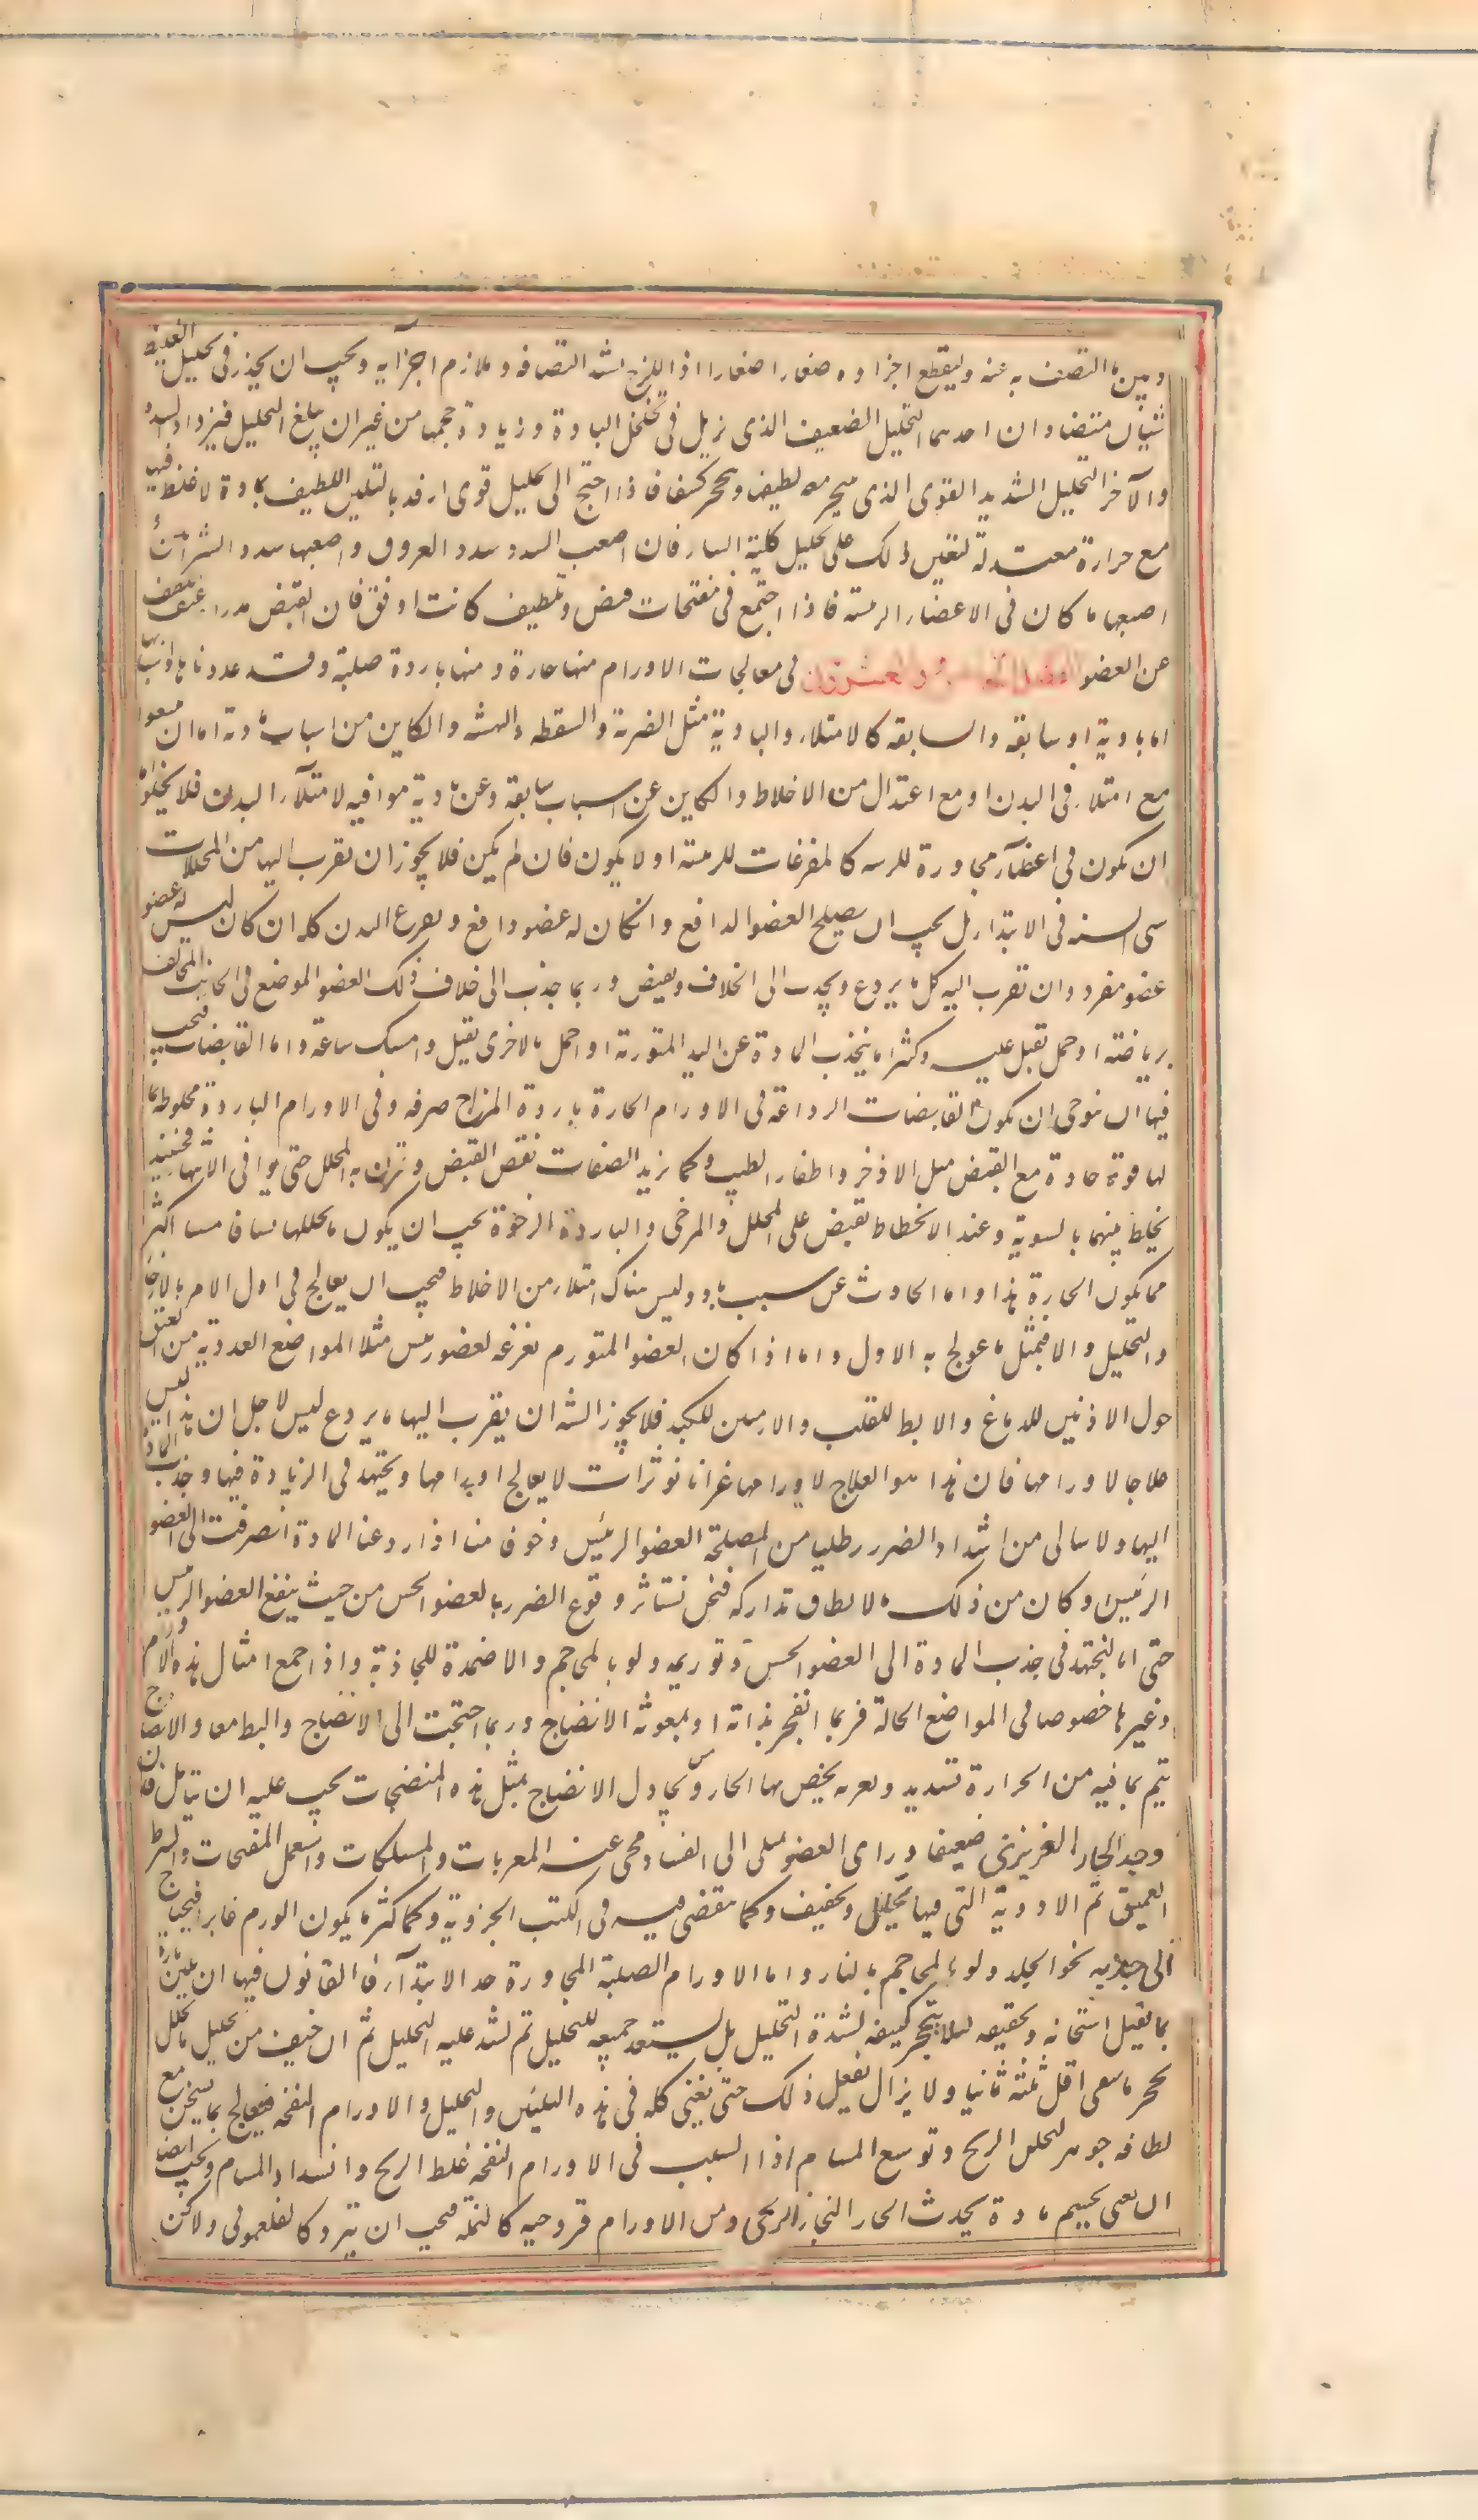 وبين ما التصق به عنه وليقطع اجزاوه صغارا صغارا اذ اللزج شد التصاقه وتلازم اجزآيه ويجب ان يحذر فى تحليل الغليظ
شيئان متضادان احدهما التحليل الضعيف الذى يزيل فى تخلخل المادة وزيادة حجمها من غيران يبلغ التحليل فيزداد السدد
والآخر التحليل الشديد القوى الذى يتحجر معه لطيفه ويحجر كثيفه فاذا احتيج الى تحليل قوى ارفد بالتليين اللطيف بمادة لا غلظ فيها
مع حرارة معتدلة لتعين ذلك على تحليل كلية الساد فان اصعب السدد سدد العروق واصعبها سدد الشرائن
اصعبها ما كان فى الاعضاء الرئسة فاذا اجتمع فى مفتحات قبض وتلطيف كانت اوفق فان القبض يدرا عنف اللطيف
عن العضو الفصل الخامس والعشرون فى معالجات الاورام منها حارة ومنها باردة صلبة وقد عددناها واسبابها
اما بادية او سابقه والسابقه كالامتلاء والبادية مثل الضربة والسقطه والنهشه والكاين من اسباب بادية اما ان يتفق
مع امتلاء فى البدن او مع اعتدال من الاخلاط والكاين عن اسباب سابقه وعن بادية موافيه لامتلآء البدن فلا يخلوا اما
ان يكون فى اعضآء مجاورة للرئسه كالمفرغات للرئسة او لا يكون فان لم يكن فلا يجوز ان يقرب اليها من المحللات
شى البته فى الابتداء بل يجب ان يصلح العضو الدافع وانكان له عضو دافع ويصلح البدن كله ان كان ليس له عضو
عضو مفرد وان تقرب اليه كل ما يردع ويجذب الى الخلاف ويقبض وربما جذب الى خلاف ذلك العضو الموضع فى الجانب المخالف
برياضته او حمل ثقيل عليه وكثيرا ما ينجذب المادة عن اليد المتورمة اذا حمل بالاخرى ثقيل وامسك ساعة واما القابضات فيجب
فيها ان يتوخى ان يكون القابضات الرداعة فى الاورام الحارة باردة المزاج صرفه وفى الاورام الباردة مخلوطة بما
لها قوة حادة مع القبض مثل الاذخر واظفار الطيب وكلما يزيد الصفات نقص القبض وقرن به المحلل حتى يوافى الانتهاء فحينئذ
يخلط بينهما بالسوية وعند الانحطاط يقبض على المحلل والمرخى والباردة الرخوة يجب ان يكون ما يحللها مساقا ميبسا اكثر
مما يكون الحارة هذا واما الحادث عن سبب باد وليس هناك امتلاء من الاخلاط فيجب ان يعالج فى اول الامر بالارخاء
والتحليل والا فبمثل ما عولج به الاول واما اذا كان العضو المتورم مفرغه لعضو رئس مثلا المواضع الغددية من العنق
حول الاذنين للدماغ والابط للقلب والاربيتين للكبد فلا يجوز البته ان يقرب اليها ما يردع ليس لاجل ان هذا ليس
علاجا لاورامها فان هذا هو العلاج لاورامها غير انا نوثر ان لا يعالج اورامها ويجتهد فى الزيادة فيها وجذب المادة
اليها ولا نبالى من اشتداد الضرر طلبا من المصلحة العضو الرئيس وخوفا منا اذا ردعنا المادة انصرفت الى العضو
الرئيس وكان من ذلك ما لا يطاق تداركه فنحن نستاثر وقوع الضرر بالعضو الخسيس من حيث ينفع العضو الرئيس
حتى انا لنجتهد فى جذب المادة الى العضو الخسيس وتوريمه ولو بالمحاجم والاضمدة الجاذبة واذا جمع امثال هذه الاورام
وغيرها خصوصا فى المواضع الخالية فربما انفجر بذاته او بمعونة الانضاج وربما احتجت الى الانضاج والبط معا والانضاج
يتم بما فيه من الحرارة تسديد وتغرية يحصر بها الحار ويحاول الانضاج بمثل هذه المنضجات يجب عليه ان يتامل فان
وجد الحار الغريزى ضعيفا وراى العضو يميل الى الفساد نحى عنه المغريات والمسككات واستعمل المفتحات والشرط
العميق ثم الادوية التى فيها تحليل وتجفيف وكما نقضى فيه فى الكتب الجزوية وكما كثير ما يكون الورم غايرا فيحتاج
الى جذبه نحو الجلد ولو بالمحاجم بالنار واما الاورام الصلبة المجاورة حد الابتدآء فالقانون فيها ان يلين تارة
بما يقبل استحانه وتجفيفه لئلا يتحجر كثيفه لشدة التحليل بل يستعد جميعه للتحليل ثم يشد عليه التحليل ثم ان خيف من تحليل ما تحلل
تحجر ما يبقى اقبل تلينه ثانيا ولا يزال يفعل ذلك حتى يفنى كله فى هذه التليين والتحليل والاورام النفخه فيعالج بما يسخن مع
لطافه جوهر لتحلل الريح وتوسع المسام اذ السبب فى الاورام النفخه غلظ الريح وانسداد المسام ويجب ايضا
ان يعنى بحسم مادة يحدث الحار البخار الريحى ومن الاورام قروحيه كالنملة فيجب ان تبرد كالفلغمونى ولاكن